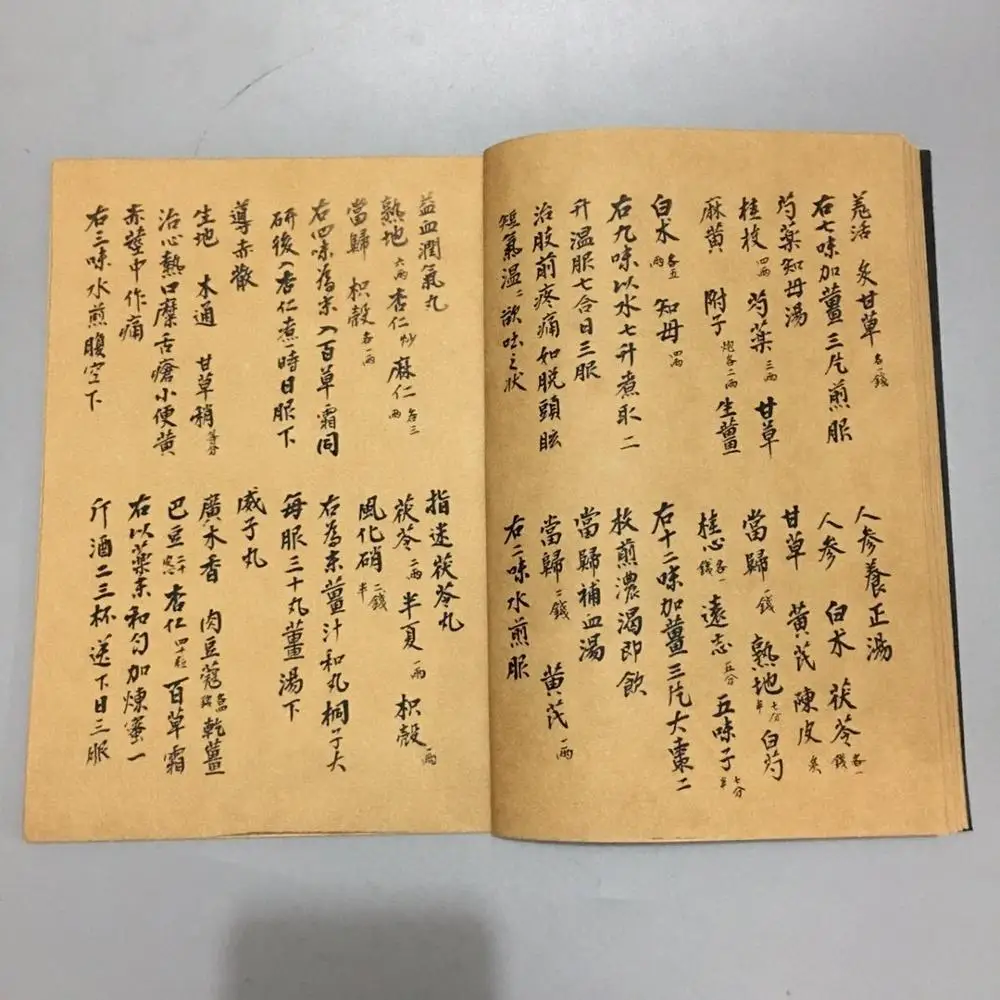 羗活 炙甘草 各一錢
右七味加薑三片煎服
芍藥知母湯
桂枝 四兩 芍藥 三兩 甘草
麻黃 附子 炮各二兩 生薑
白术 各五兩 知母 四兩
右九味以水七升煮取二
升温服七合日三服
治肢前疼痛如脱頭眩
短氣温〻欲吐之狀
人参養正湯
人参 白术 茯苓 各一錢
甘草 黄芪 陳皮 炙
當歸 一錢 熟地 七分半 白芍
桂心 各一錢 遠志 五分 五味子 七分半
右十二味加薑三片大棗二
枚煎濃渴即飲
當歸補血湯
當歸 二錢 黄芪 一兩
右二味水煎服
益血潤氣丸
熟地 六兩 杏仁 炒 麻仁 各三兩
當歸 枳殻 各一兩
右四味為末入百草霜同
研後入杏仁煮一時日服下
導赤散
生地 木通 甘草稍 等分
治心熱口糜舌瘡小便黄
赤莖中作痛
右三味水煎腹空下
指迷茯苓丸
茯苓 二兩 半夏 一兩 枳殻 一兩
風化硝 二錢半
右為末薑汁和丸桐子大
每服三十丸薑湯下
威子丸
廣木香 肉豆蔻 乾薑
巴豆 二十 杏仁 四十粒 百草霜
右以藥末和匀加煉蜜一
斤酒二三杯送下日三服